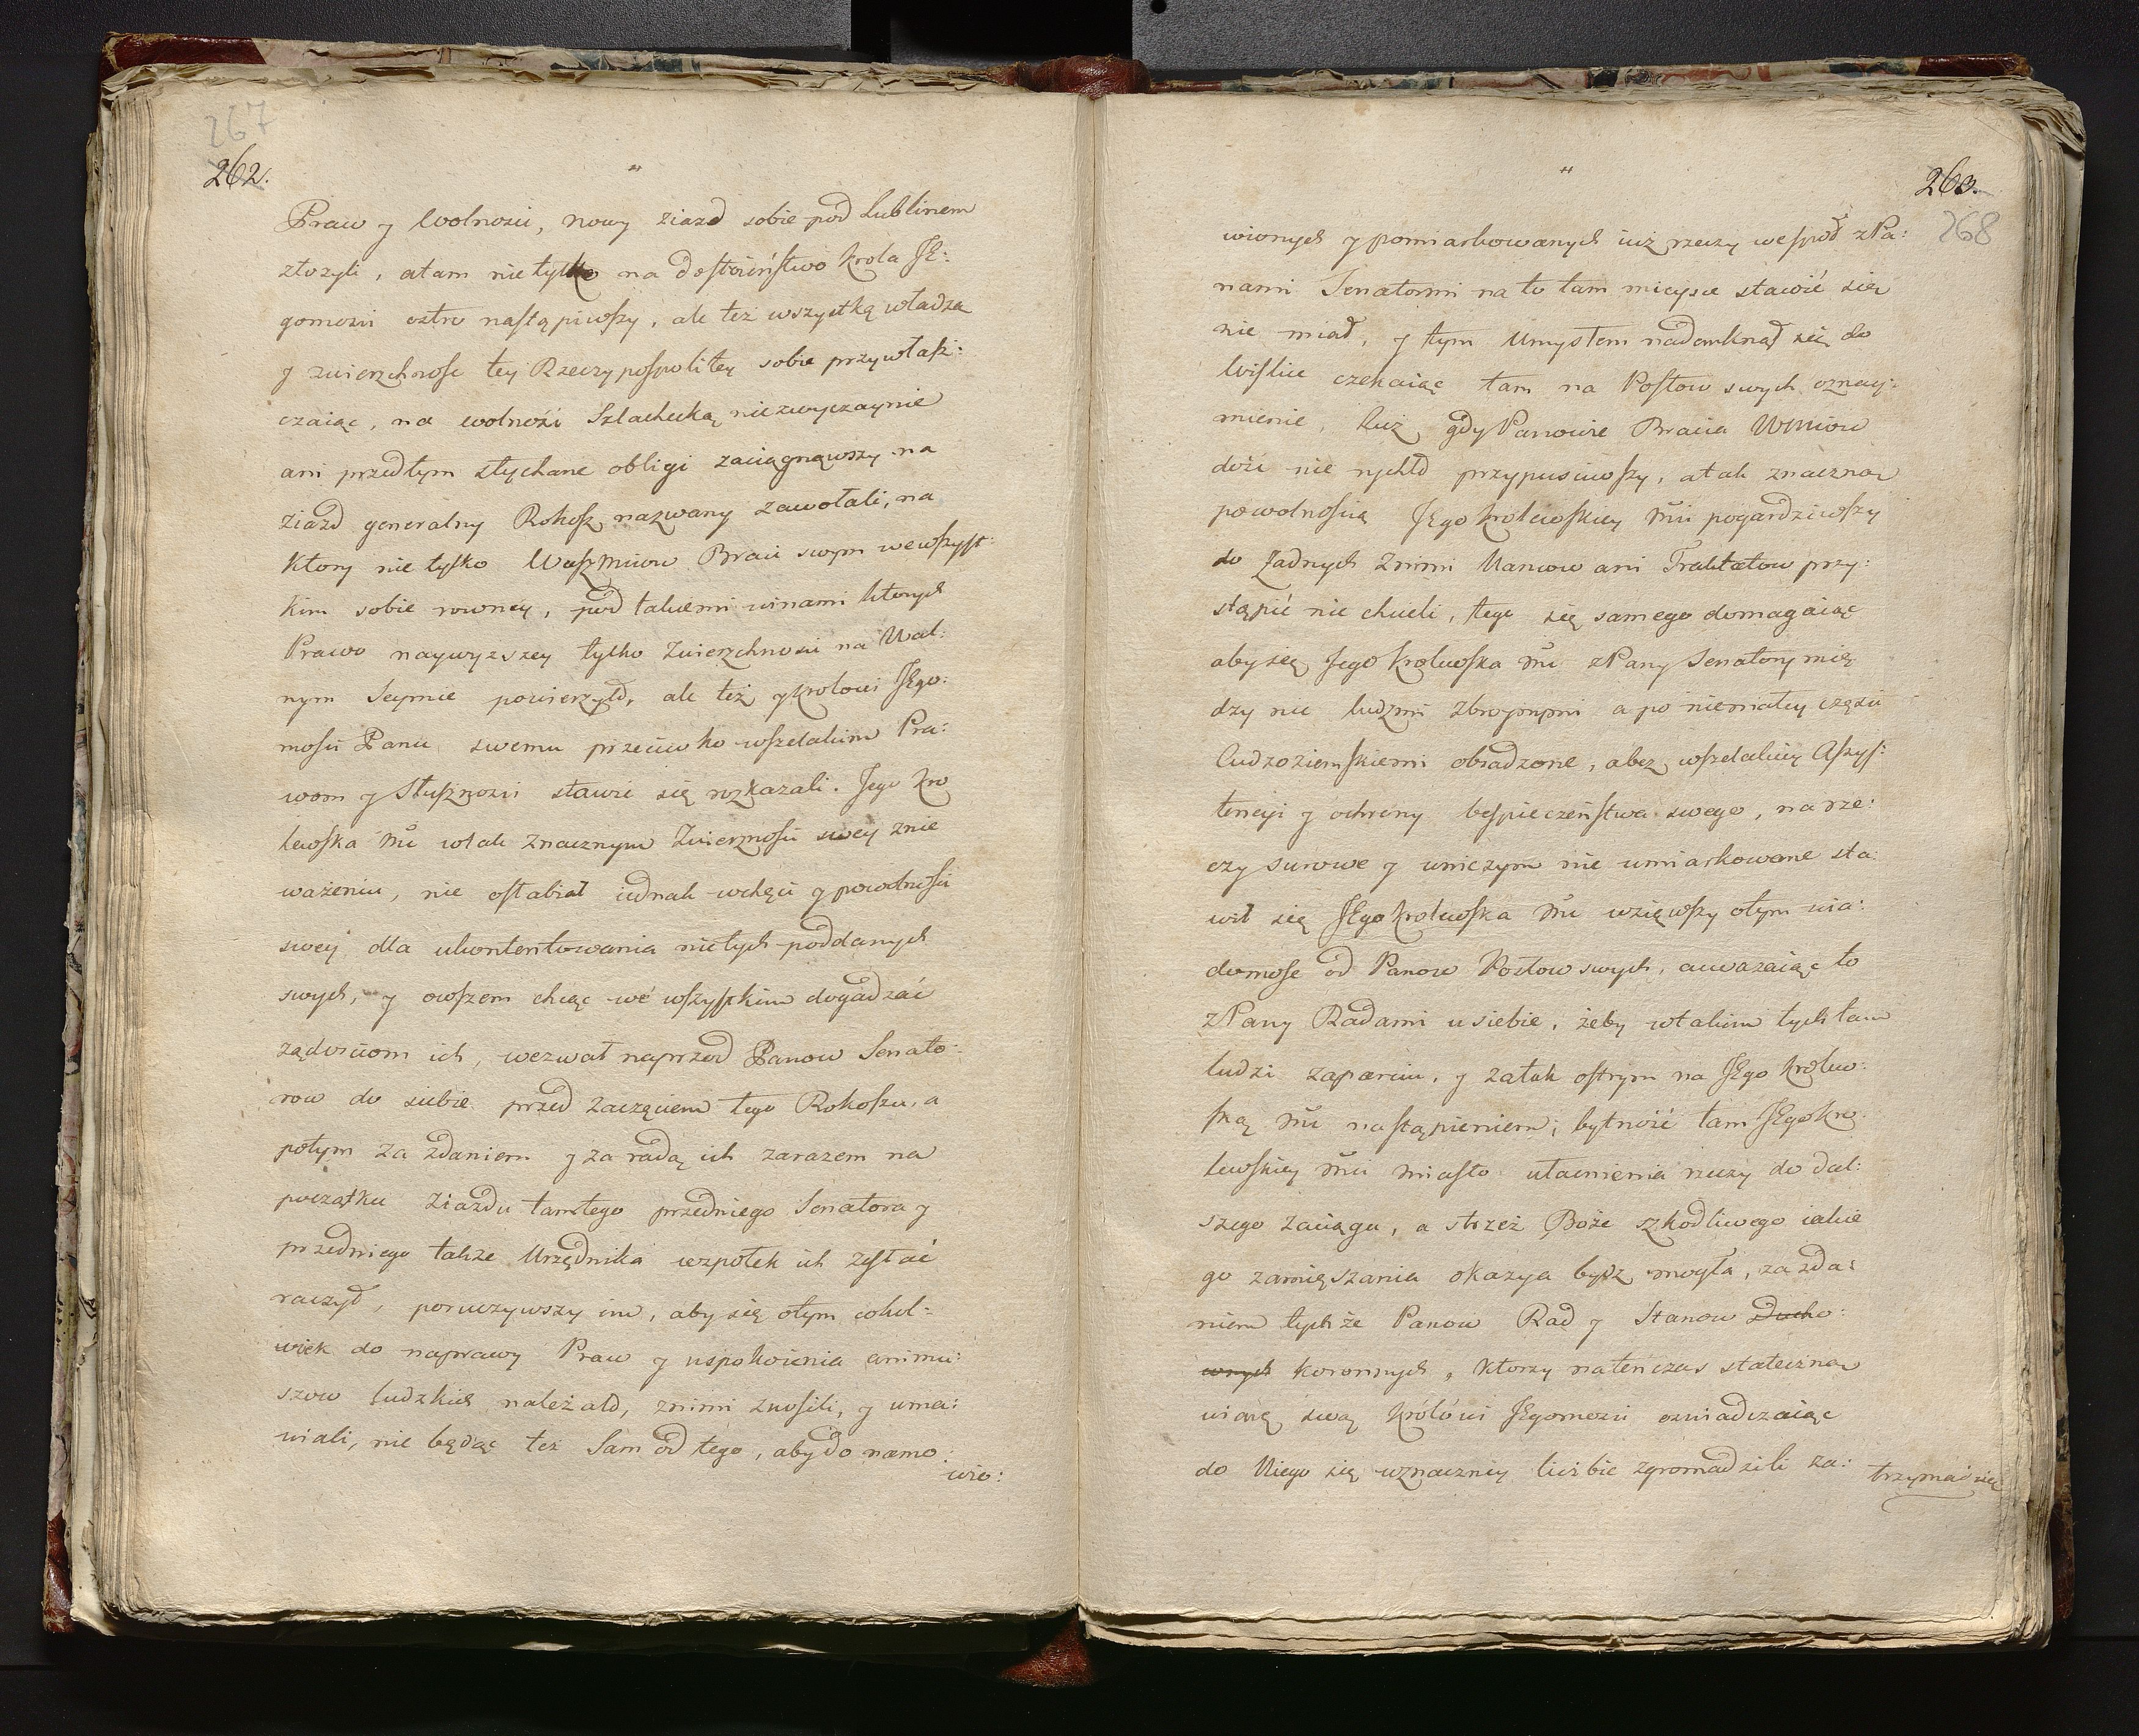 267
262.
"
Praw y Wolnosci, nowy ziazd sobie pod Lublinem
złożyli, atam nietylko na dostoieństwo Krola JE:
gomosci ostro nastąpiwszy, ale też wszystką władza
y zwierzchnosc tey Rzeczypospolitey sobie przywłasz:
czaiąc, na wolność Szlachecką niezwyczaynie
ani przedtym słychane obligi zaciągnąwszy na
ziazd generalny Rokosz nazwany zawołali, na
ktory nie tylko Waszmciow Braci swym wewszyst:
kim sobie rowney, pod takiemi winami ktorych
Prawo naywyzszey tylko Zwierzchnosci na Wal:
nym Seymie powierzyło, ale też y Krolowi JEgo:
mosci Panu swemu przeciwko wszelakim Pra:
wom y Słusznosci stawić się rozkazali. Jego Kro
lewska Mć wtak znacznym Zwierznosci swey znie
ważeniu, nie osłabiał iednak wchęci y powolnosci
swey dla ukontentowania nietych poddanych
swych, y owszem chcąc we wszystkim dogadzać
żądosciom ich, wezwał naprzod Panow Senato:
row do siebie przed zaczęciem tego Rokoszu, a
potym za zdaniem y za radą ich zarazem na
początku Ziazdu tamtego przedniego Senatora y
przedniego takze Urzędnika wzpołek ich zesłać
raczył, poruczywszy im, aby się otym cokol=
wiek do naprawy Praw y uspokoienia animu:
szow ludzkich należało, znimi znosili, y uma:
wiali, nie będąc też Sam od tego, aby do namo:
wio:
"
263.
268
wionych y pomiarkowanych iuż rzeczy wespoł z Pa:
nami Senatormi na to tam mieysce stawić się
nie miał, y tym Umysłem nadomknął się do
Wislice czekaiąc tam na Posłow swych oznay:
mienie, lecz gdy Panowie Bracia WMciow
dość nie rychło przypusciwszy, atak znaczną
powolnoscią JEgo Krolewskiey Mći pogardziwszy
do Zadnych Znimi Namow ani Traktatow przy:
stąpić nie chcieli, tego się samego domagaiąc
aby się Jego Krolewska Mć z Pany Senatory mię
dzy nie ludzmi zbroynymi a po niemałey części
Cudzoziemskiemi obsadzone, abez wszelakiey Assys:
tencyi y ochrony bespieczeństwa swego, na rze:
czy surowe y wniczym nie umiarkowane sta:
wił się JEgo Krolewska Mć wziąwszy otym wia:
domosc od Panow Posłow swych, auważaiąc to
z Pany Radami u siebie, żeby wtakim tych tam
ludzi zaparciu, y zatak ostrym na JEgo Krolew:
ską Mć nastąpieniem; bytność tam JEgo Kro
lewskiey Mći miasto ułacnienia rzeczy do dal:
szego zaciągu, a strzeż Boże szkodliwego iakie
go zamięszania okazya bydz mogła, za zda:
niem tychże Panow Rad y Stanow Ducho:
wnych koronnych, ktorzy natenczas stateczną
wiarę swą Królówi JEgomosci oswiadczaiąc
do Niego się wznaczney liczbie zgromadzili za:
trzymać się